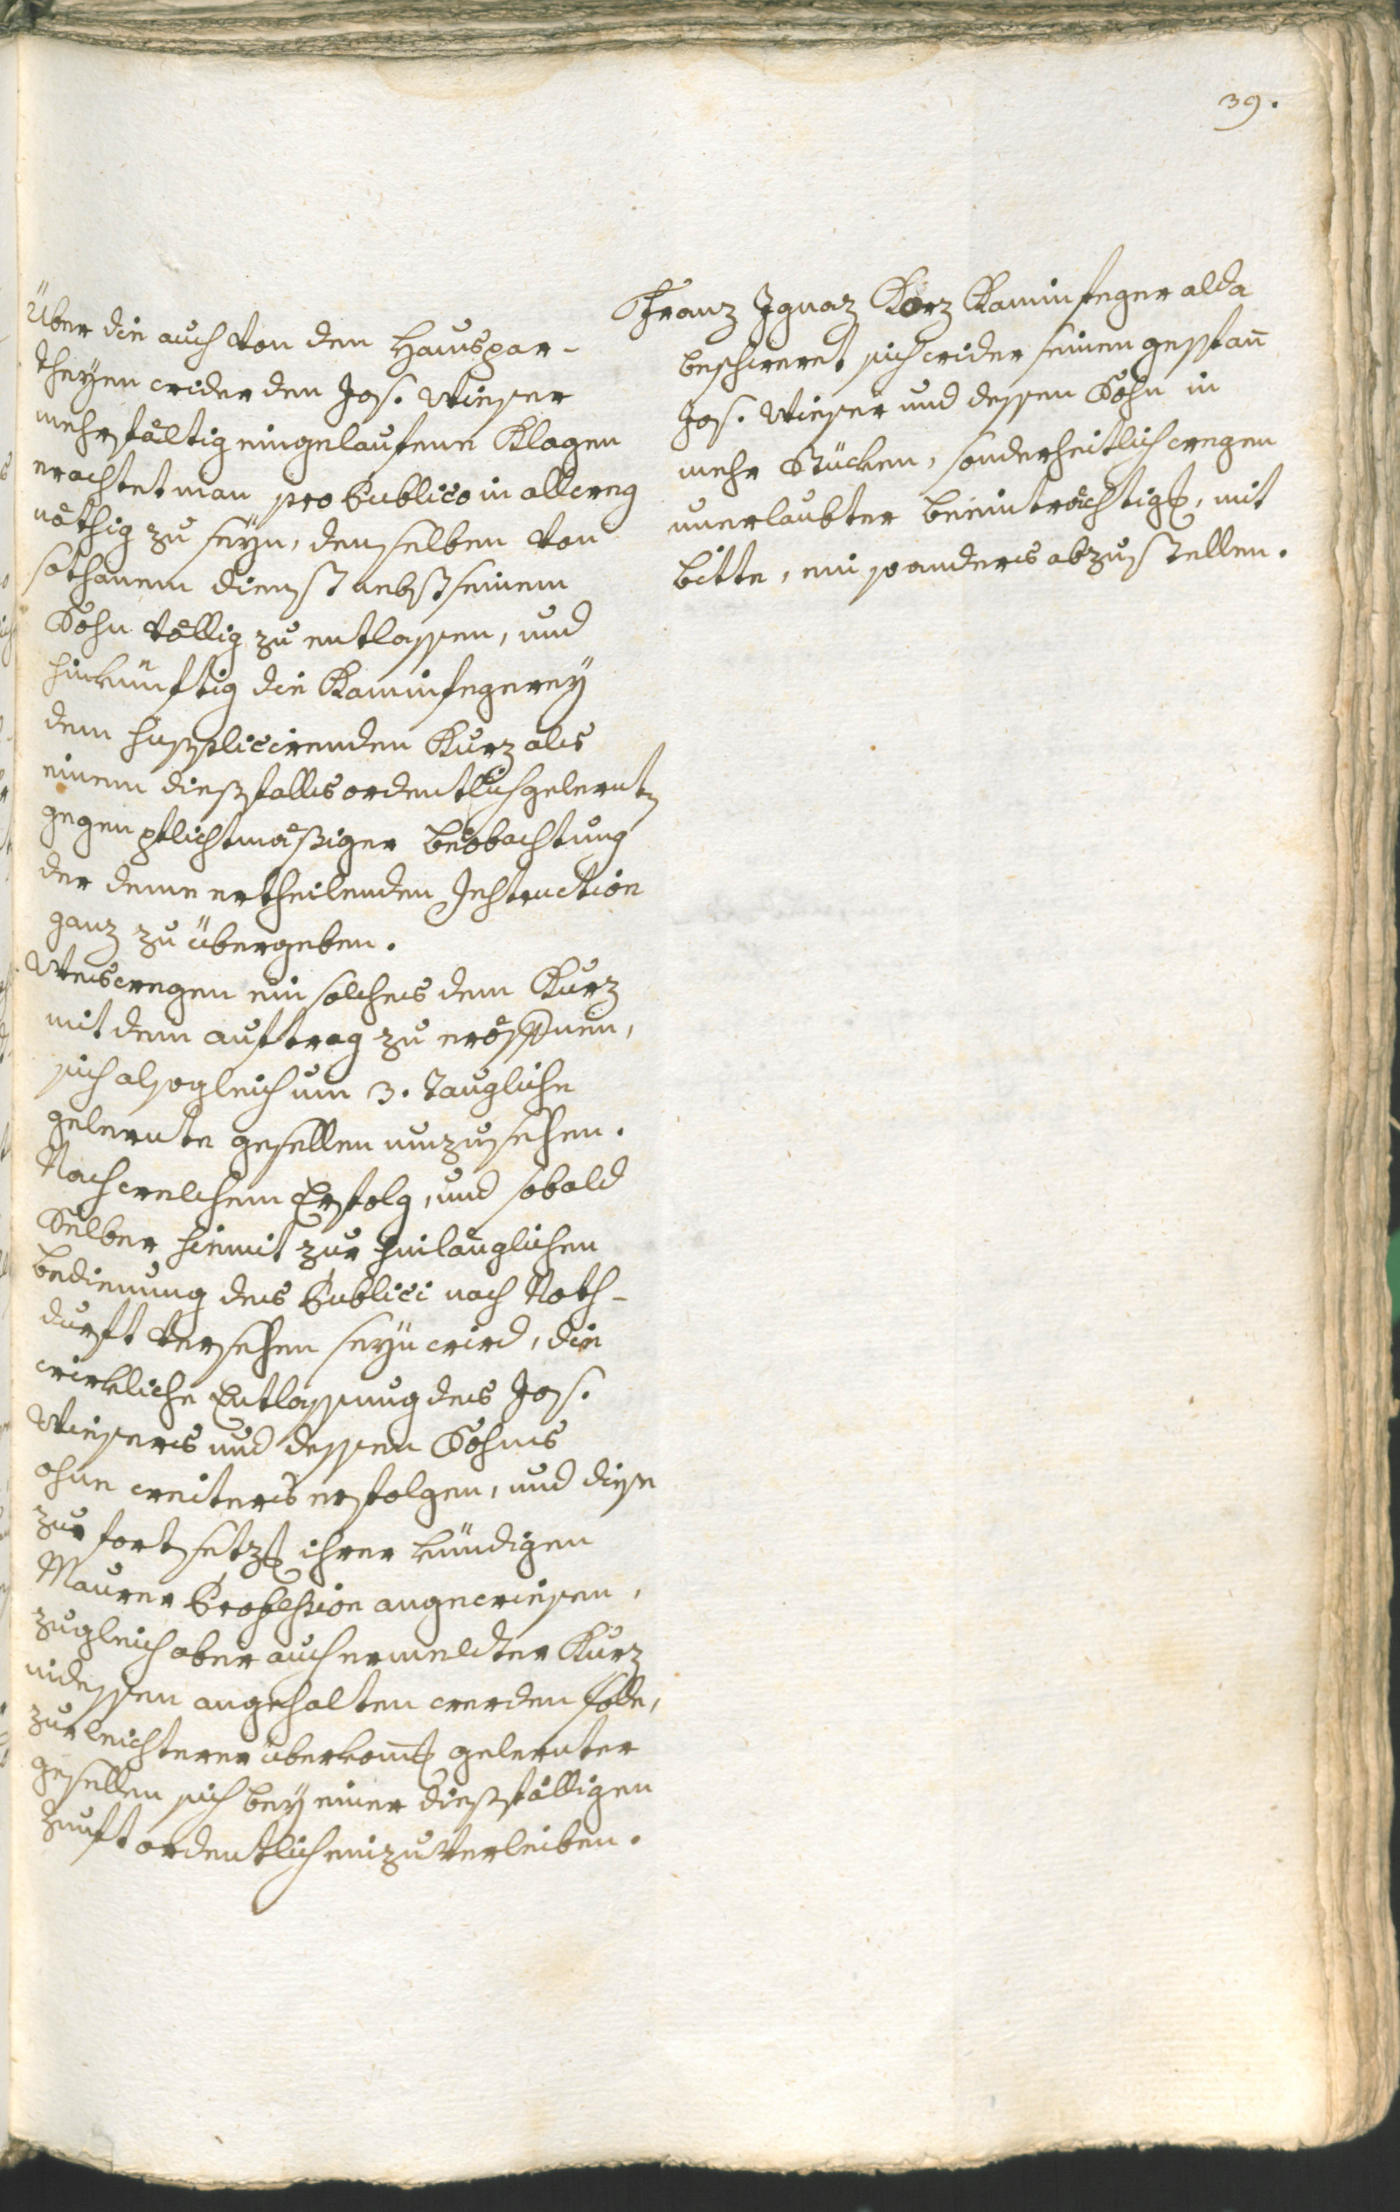 39.
Franz Ignaz Korz Kaminfeger alda
beschweret sich wider seinen gespan̄
Jos. Wieser und dessen Sohn in
mehr Stücken, sonderheitlich wegen
unerlaubter beeinträchtigg, mit
bitte, ein so anderes abzustellen.
Über die auch von den Hauspar-
theyen wider den Jos. Wieser
mehrfältig eingelaufene Klagen
erachtet man pro Publico in allweg
nöthig zu seyn, denselben von
sothanem dienst nebst seinem
Sohn völlig zu entlassen, und
hinkünftig die Kaminfegerey
dem supplicirenden Kurz als
einem diesfalls ordentlich gelernten
gegen pflichtmäßiger beobachtung
der deme ertheilenden Instruction
ganz zu übergeben.
Weswegen ein solches dem Kurz
mit dem auftrag zu eröffnen,
sich alsogleich um 3. Taugliche
gelernte gesellen umzusehen.
Nach welchem Erfolg, und sobald
Selber hiemit zur hinlänglichen
bedienung des Publici nach Noth-
durft versehen seyn wird, die
wirkliche Entlassung des Jos.
Wiesers und dessen Sohns
ohne weiters erfolgen, und diese
zur fortsetzg ihrer kündigen
Maurer Profession angewiesen,
zugleich aber auch ermeldter Kurz
indessen angehalten werden solle,
zur leichterer überkom̄g gelernter
gesellen sich bey einer diesfälligen
Zunft ordentlich einzuverleiben.